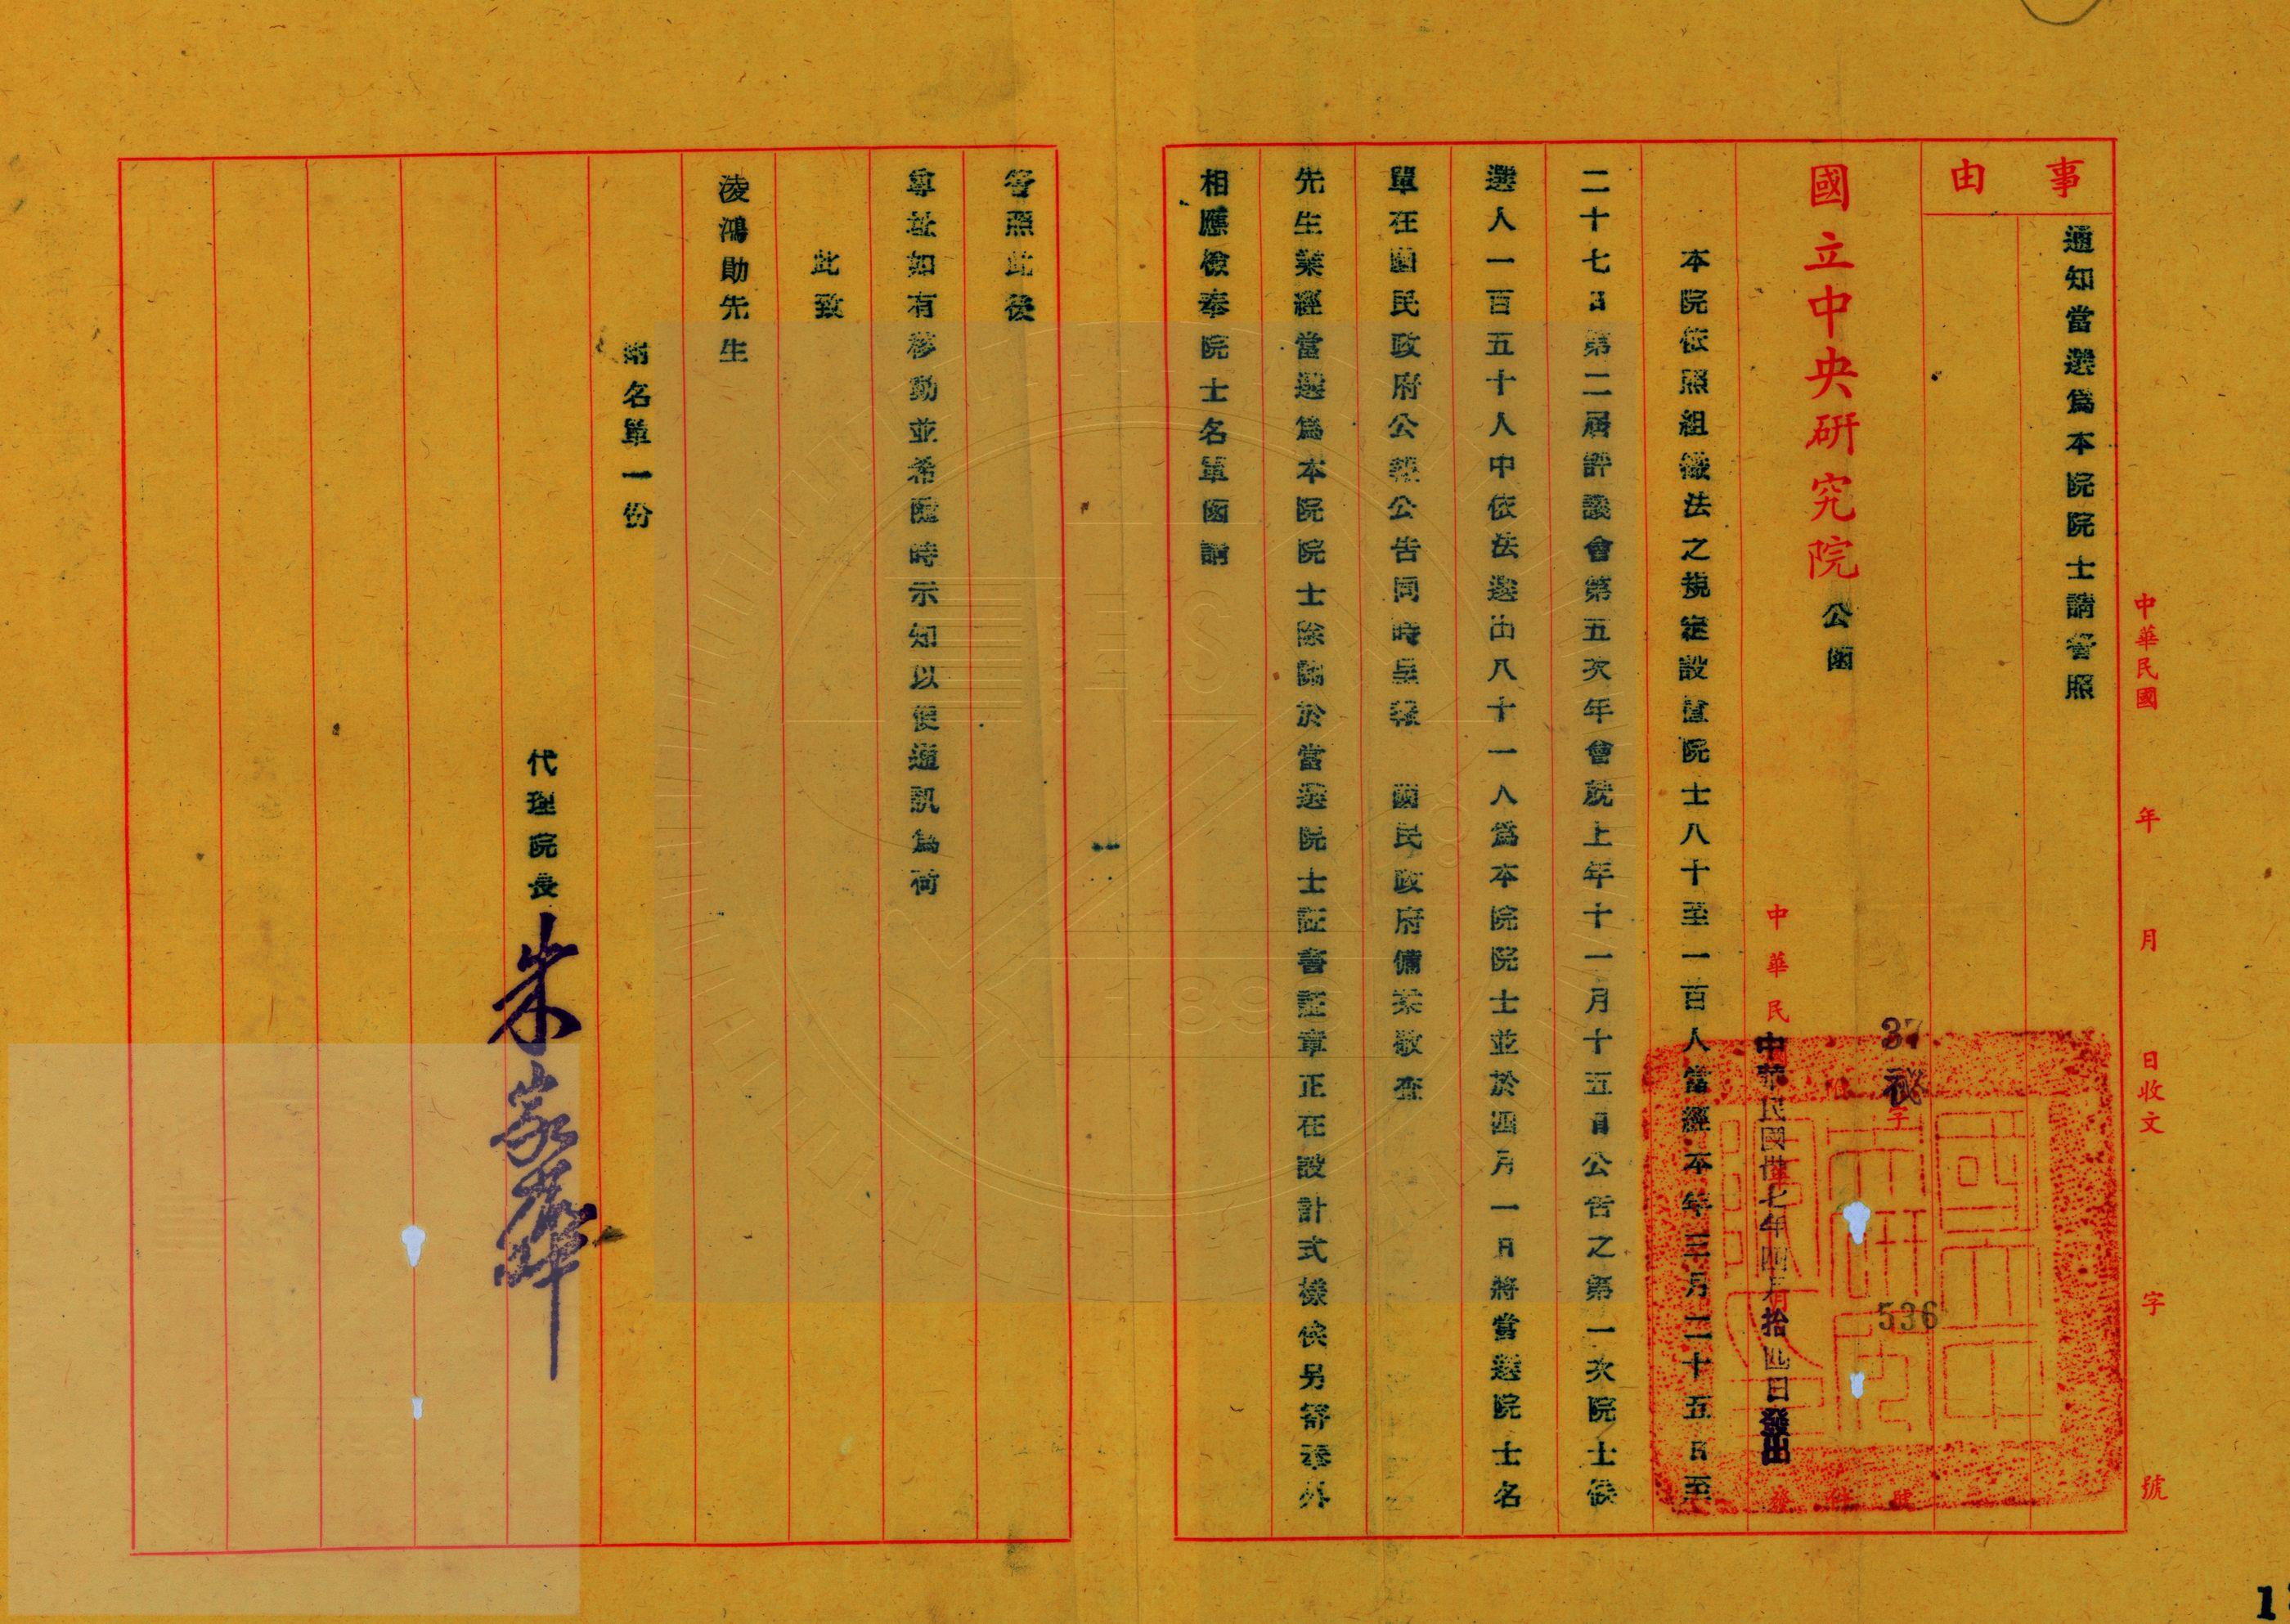 事由
通知當選為本院院士請詧照
國立中央研究院 公函
37 秘 字 536
中華民國卅七年四月拾四日發出
本院依照組織法之規定設置院士八十至一百人當經本年三月二十五日至
二十七日第二屆評議會第五次年會就上年十一月十五日公告之第一次院士候
選人一百五十人中依法選出八十一人為本院院士並於四月一日將當選院士名
單在國民政府公報公告同時呈報 國民政府備案敬查
先生業經當選為本院院士除關於當選院士証書証章正在設計式樣俟另寄奉外
相應檢奉院士名單函請
詧照此後
尊址如有移動並希隨時示知以便通訊為荷
此致
淩鴻勛先生
附名單一份
代理院長 朱家驊
中華民國 年 月 日收文 字 號